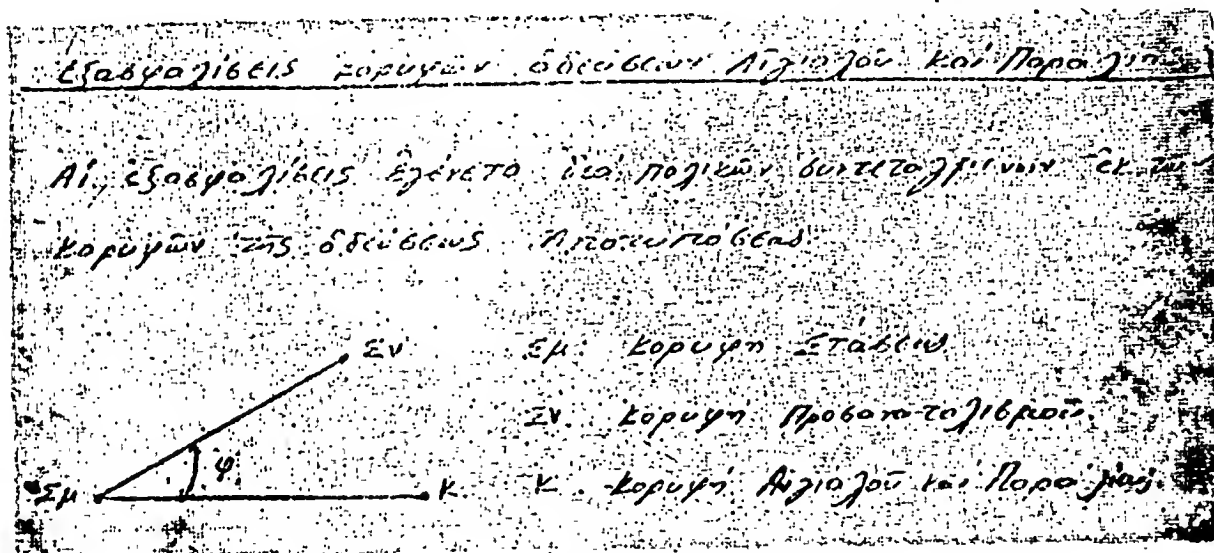 Ἐξασφαλίσεις κορυφῶν ὁδεύσεων Αἰγιαλοῦ καὶ Παραλίας
Αἱ ἐξασφαλίσεις ἐγένετο διά πολικῶν συντεταγμένων ἐκ τῶν
κορυφῶν τῆς ὁδεύσεως Ἀποτυπώσεως
Σν
Σμ: Κορυφή Στάσεως
Σν: Κορυφή Προσανατολισμοῦ.
φ
Σμ
Κ
Κ: Κορυφή Αἰγιαλοῦ καὶ Παραλίας.